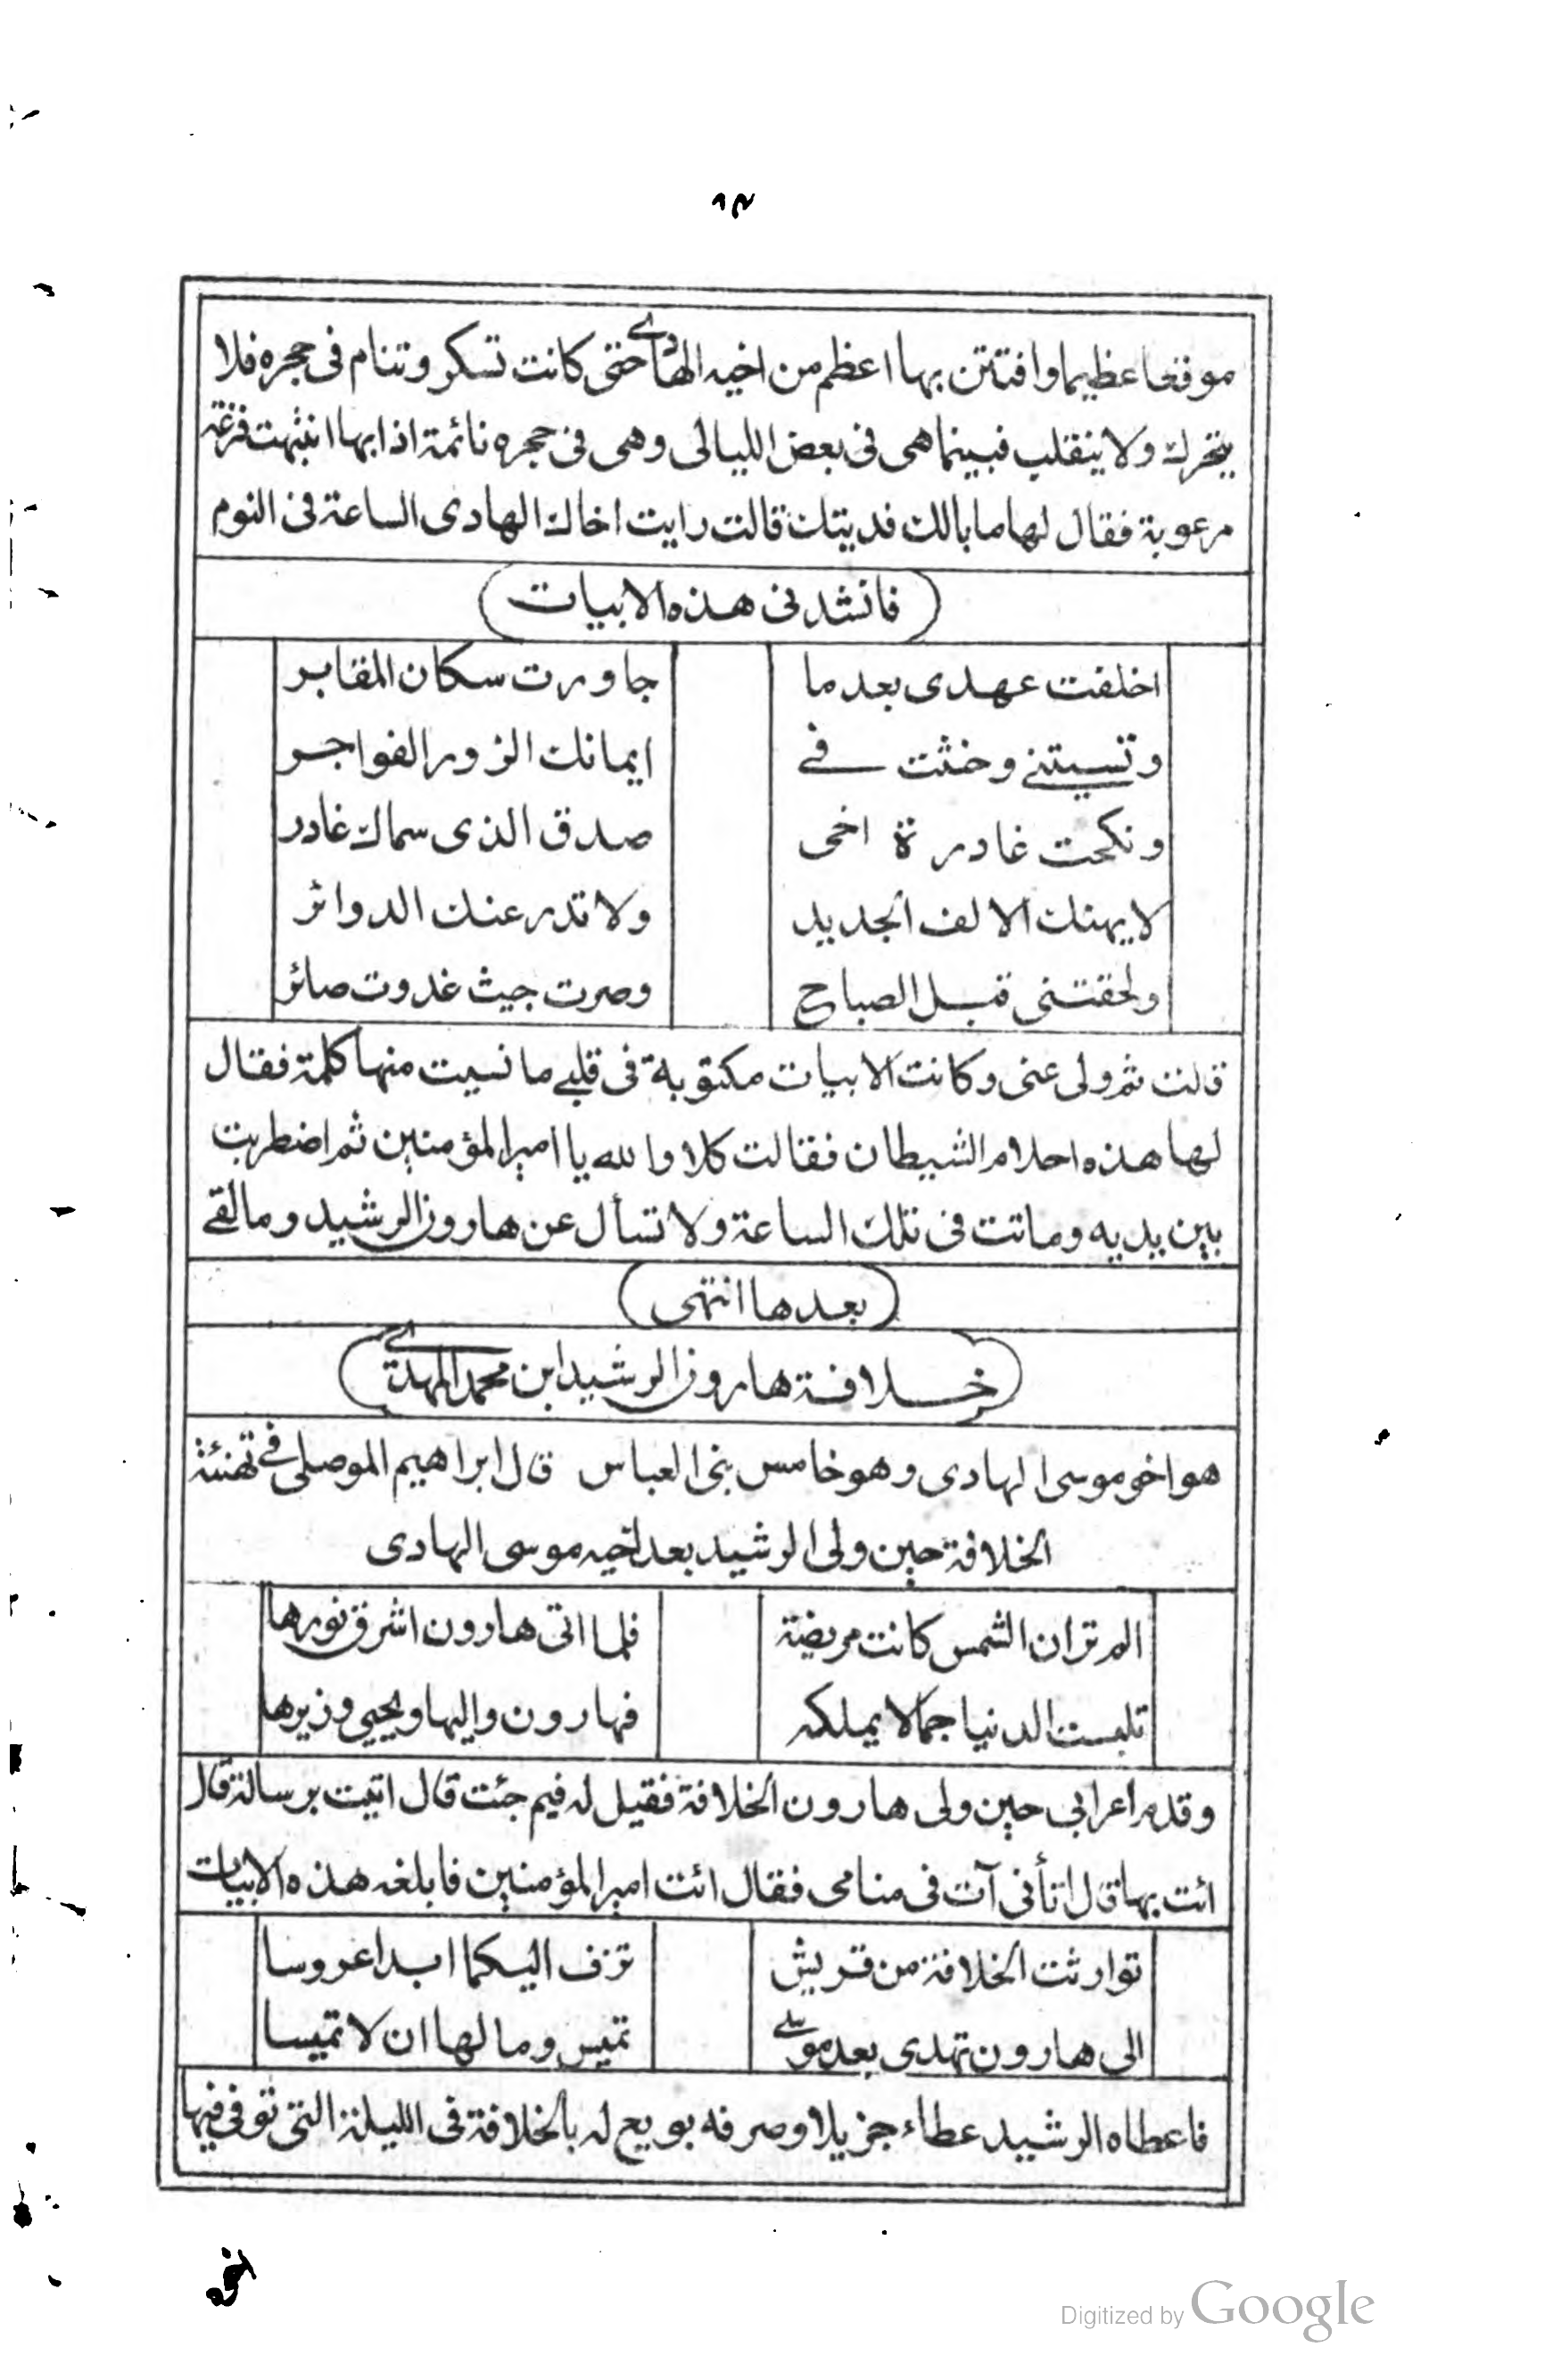 موقعا عظيما وافتتن بها اعظم من اخيه الهادي حتى كانت تسكر وتنام فى حجره فلا
يتحرك ولا ينقلب فبينما هى فى بعض الليالى وهى فى حجره نائمة اذا بها انتبهت فزعة
مرعوبة فقال لها ما بالك فديتك قالت رايت اخاك الهادى الساعة فى النوم
(فانشدنى هذه الابيات)
اخلفت عهدى بعد ما جاورت سكان المقابر
ونسيتني وحنثت في ايمانك الزور الفواجر
ونكحت غادرة اخى صدق الذى سماك غادر
لا يهنك الالف الجديد ولا تدر عنك الدوائر
ولحقتنى قبل الصباح وصرت حيث غدوت صائر
قالت ثم ولى عنى وكانت الابيات مكتوبة فى قلبي ما نسيت منها كلمة فقال
لها هذه احلام الشيطان فقالت كلا والله يا امير المؤمنين ثم اضطربت
بين يديه وماتت فى تلك الساعة ولا تسأل عن هارون الرشيد وما لقي
(بعدها انتهى)
(خلافة هارون الرشيد ابن محمد المهدي)
هو اخو موسى الهادى وهو خامس بنى العباس قال ابراهيم الموصلى في تهنئة
الخلافة حين ولى الرشيد بعد اخيه موسى الهادى
الم تر ان الشمس كانت مريضة فلما اتى هارون اشرق نورها
تلبست الدنيا جمالا بملكه فهارون واليها ويحيي وزيرها
وقدم أعرابي حين ولى هارون الخلافة فقيل له فيم جئت قال اتيت برسالة قال
ائت بها قال اتأنى آت فى منامى فقال ائت امير المؤمنين فابلغه هذه الابيات
توارثت الخلافة من قريش تزف اليكما ابدا عروسا
الى هارون تهدى بعد موسي تميس وما لها ان لا تميسا
فاعطاه الرشيد عطاء جزيلا وصرفه بويع له بالخلافة فى الليلة التى توفى فيها
Digitized by Google